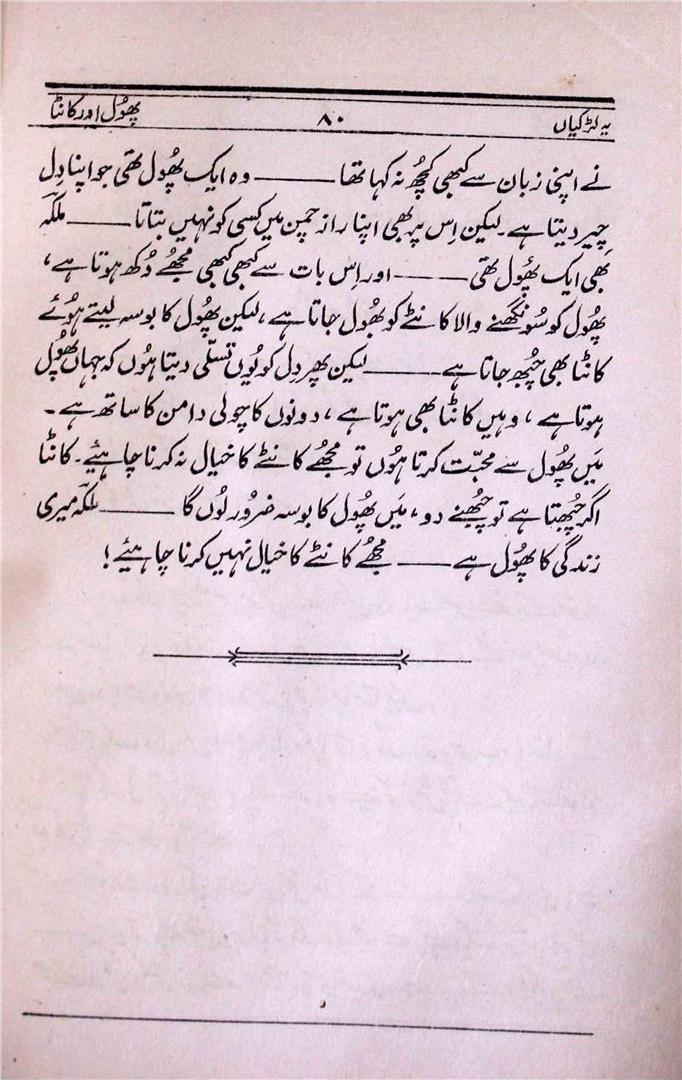 یہ لڑکیاں ۸۰ پھُول اور کانٹا
نے اپنی زبان سے کبھی کچُھ نہ کہا تھا ——— وہ ایک پھُول تھی جو اپنا دِل
چیر دیتا ہے۔ لیکن اِس پر بھی اپنا راز چمن میں کسی کو نہیں بتاتا ——— ملکہ
بھی ایک پھُول تھی ——— اور اِس بات سے کبھی کبھی مجُھے دُکھ ہوتا ہے،
پھُول کو سُونگھنے والا کانٹے کو بھُول جاتا ہے، لیکن پھُول کا بوسہ لیتے ہُوئے
کانٹا بھی چُبھ جاتا ہے ——— لیکن پھر دِل کو یُوں تسلّی دیتا ہُوں کہ جہاں پھُول
ہوتا ہے، وہیں کانٹا بھی ہوتا ہے، دونوں کا چولی دامن کا ساتھ ہے۔
مَیں پھُول سے محبّت کرتا ہُوں تو مجُھے کانٹے کا خیال نہ کرنا چاہئیے۔ کانٹا
اگر چُبھتا ہے تو چُبھنے دو، مَیں پھُول کا بوسہ ضرُور لُوں گا ——— ملکہ میری
زندگی کا پھُول ہے ——— مجُھے کانٹے کا خیال نہیں کرنا چاہئیے!